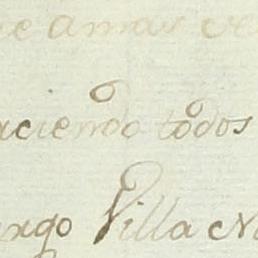 e amar
aciendo todos
argo Villa N